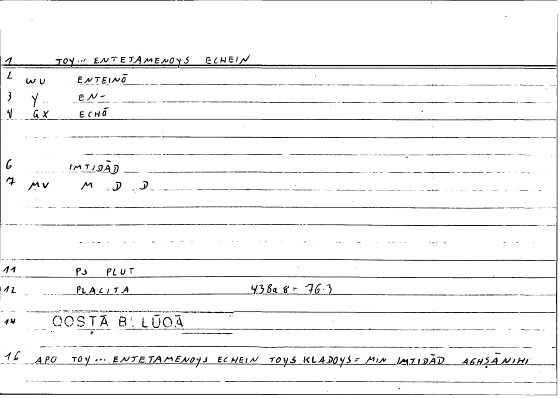 1 TOY... ENTETAMENOYS ECHEIN
2 WU ENTEINŌ
3 Y EN-
4 GX ECHŌ
6 IMTIDĀD
7 MV M D D
11 PS PLUT
12 PLACITA 438a8 = 76.3
14 QOSṬĀ B. LŪQĀ
16 APO TOY... ENTETAMENOYS ECHEIN TOYS KLADOYS = MIN IMTIDĀD AGHṢĀNIHI